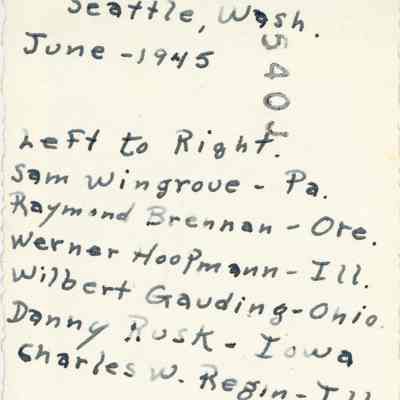 Seattle, Wash.
June - 1945
5401
Left to Right.
Sam Wingrove - Pa.
Raymond Brennan - Ore.
Werner Hoopmann - Ill.
Wilbert Gauding - Ohio.
Danny Rusk - Iowa
Charles W. Regin - Ill